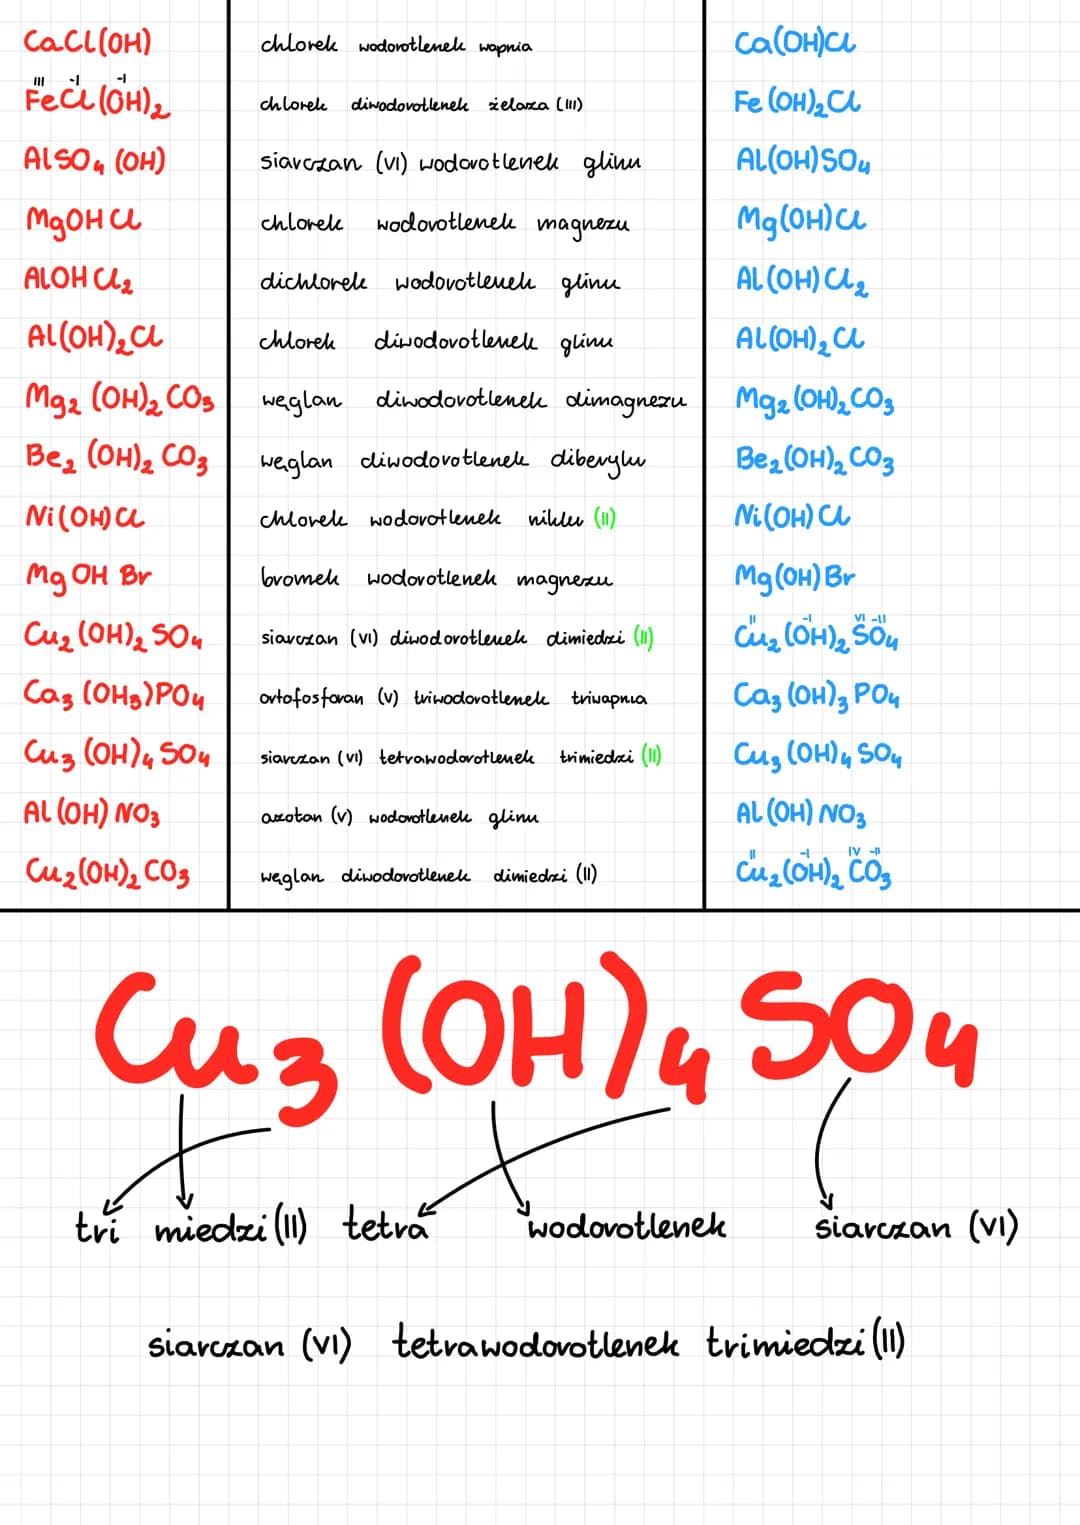 CaCl(OH) chlorek wodorotlenek wapnia Ca(OH)Cl
III -I -I
FeCl(OH)₂ chlorek diwodorotlenek żelaza (III) Fe(OH)₂Cl
AlSO₄(OH) siarczan (VI) wodorotlenek glinu Al(OH)SO₄
MgOHCl chlorek wodorotlenek magnezu Mg(OH)Cl
AlOHCl₂ dichlorek wodorotlenek glinu Al(OH)Cl₂
Al(OH)₂Cl chlorek diwodorotlenek glinu Al(OH)₂Cl
Mg₂(OH)₂CO₃ węglan diwodorotlenek dimagnezu Mg₂(OH)₂CO₃
Be₂(OH)₂CO₃ węglan diwodorotlenek diberylu Be₂(OH)₂CO₃
Ni(OH)Cl chlorek wodorotlenek niklu (II) Ni(OH)Cl
MgOHBr bromek wodorotlenek magnezu Mg(OH)Br
II -I VI -II
Cu₂(OH)₂SO₄ siarczan (VI) diwodorotlenek dimiedzi (II) Cu₂(OH)₂SO₄
Ca₃(OH₃)PO₄ ortofosforan (V) triwodorotlenek triwapnia Ca₃(OH)₃PO₄
Cu₃(OH)₄SO₄ siarczan (VI) tetrawodorotlenek trimiedzi (II) Cu₃(OH)₄SO₄
Al(OH)NO₃ azotan (V) wodorotlenek glinu Al(OH)NO₃
II -I IV -II
Cu₂(OH)₂CO₃ węglan diwodorotlenek dimiedzi (II) Cu₂(OH)₂CO₃
Cu₃(OH)₄SO₄
tri miedzi (II) tetra wodorotlenek siarczan (VI)
siarczan (VI) tetrawodorotlenek trimiedzi (II)